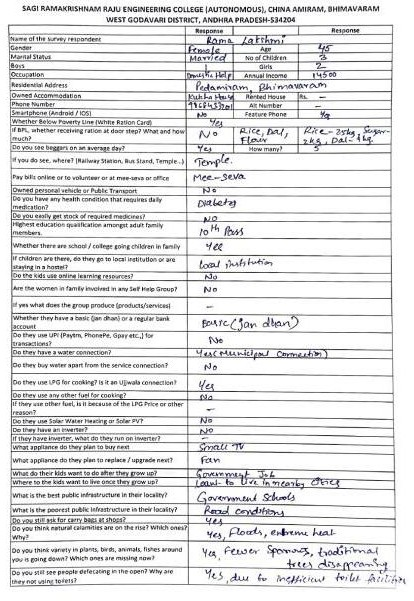 SAGI RAMAKRISHNAM RAJU ENGINEERING COLLEGE (AUTONOMOUS), CHINA AMIRAM, BHIMAVARAM
WEST GODAVARI DISTRICT, ANDHRA PRADESH-534204
Response Response
Name of the survey respondent Rama Lakshmi
Gender Female Age 45
Marital Status Married No of Children 3
Boys 1 Girls 2
Occupation Domestic Help Annual Income 14500
Residential Address Pedamiram, Bhimavaram
Owned Accommodation Kutcha House Rented House Rs. -
Phone Number Alt Number -
Smartphone (Android / IOS) No Feature Phone Yes
Whether Below Poverty Line (White Ration Card) Yes
If BPL, whether receiving ration at door step? What and how
much? No Rice, Dal, Flour Rice-25kg, Sugar-
2kg, Dal-1kg.
Do you see beggars on an average day? Yes How many? 5
If you do see, where? (Railway Station, Bus Stand, Temple..) Temple.
Pay bills online or to volunteer or at mee-seva or office Mee-Seva
Owned personal vehicle or Public Transport No
Do you have any health condition that requires daily
medication? Diabetes
Do you easily get stock of required medicines? NO
Highest education qualification amongst adult family
members. 10th Pass
Whether there are school / college going children in family Yes
If children are there, do they go to local institution or are
staying in a hostel? local institution
Do the kids use online learning resources? No
Are the women in family involved in any Self Help Group? No
If yes what does the group produce (products/services) -
Whether they have a basic (jan dhan) or a regular bank
account Basic (jan dhan)
Do they use UPI (Paytm, PhonePe, Gpay etc.,) for
transactions? No
Do they have a water connection? Yes (Municipal Connection)
Do they buy water apart from the service connection? No
Do they use LPG for cooking? Is it an Ujjwala connection? Yes
Do they use any other fuel for cooking? No
If they use other fuel, is it because of the LPG Price or other
reason? -
Do they use Solar Water Heating or Solar PV? No
Do they have an inverter? No
If they have inverter, what do they run on inverter? -
What appliance do they plan to buy next Small TV
What appliance do they plan to replace / upgrade next? Fan
What do their kids want to do after they grow up? Government Job
Where to the kids want to live once they grow up? want to live in nearby cities
What is the best public infrastructure in their locality? Government Schools
What is the poorest public infrastructure in their locality? Road conditions
Do you still ask for carry bags at shops? yes
Do you think natural calamities are on the rise? Which ones?
Why? yes, Floods, extreme heat
Do you think variety in plants, birds, animals, fishes around
you is going down? Which ones are missing now? Yes, Fewer Sparrows, traditional
trees disappearing
Do you still see people defecating in the open? Why are
they not using toilets? Yes, due to inefficient toilet facilities